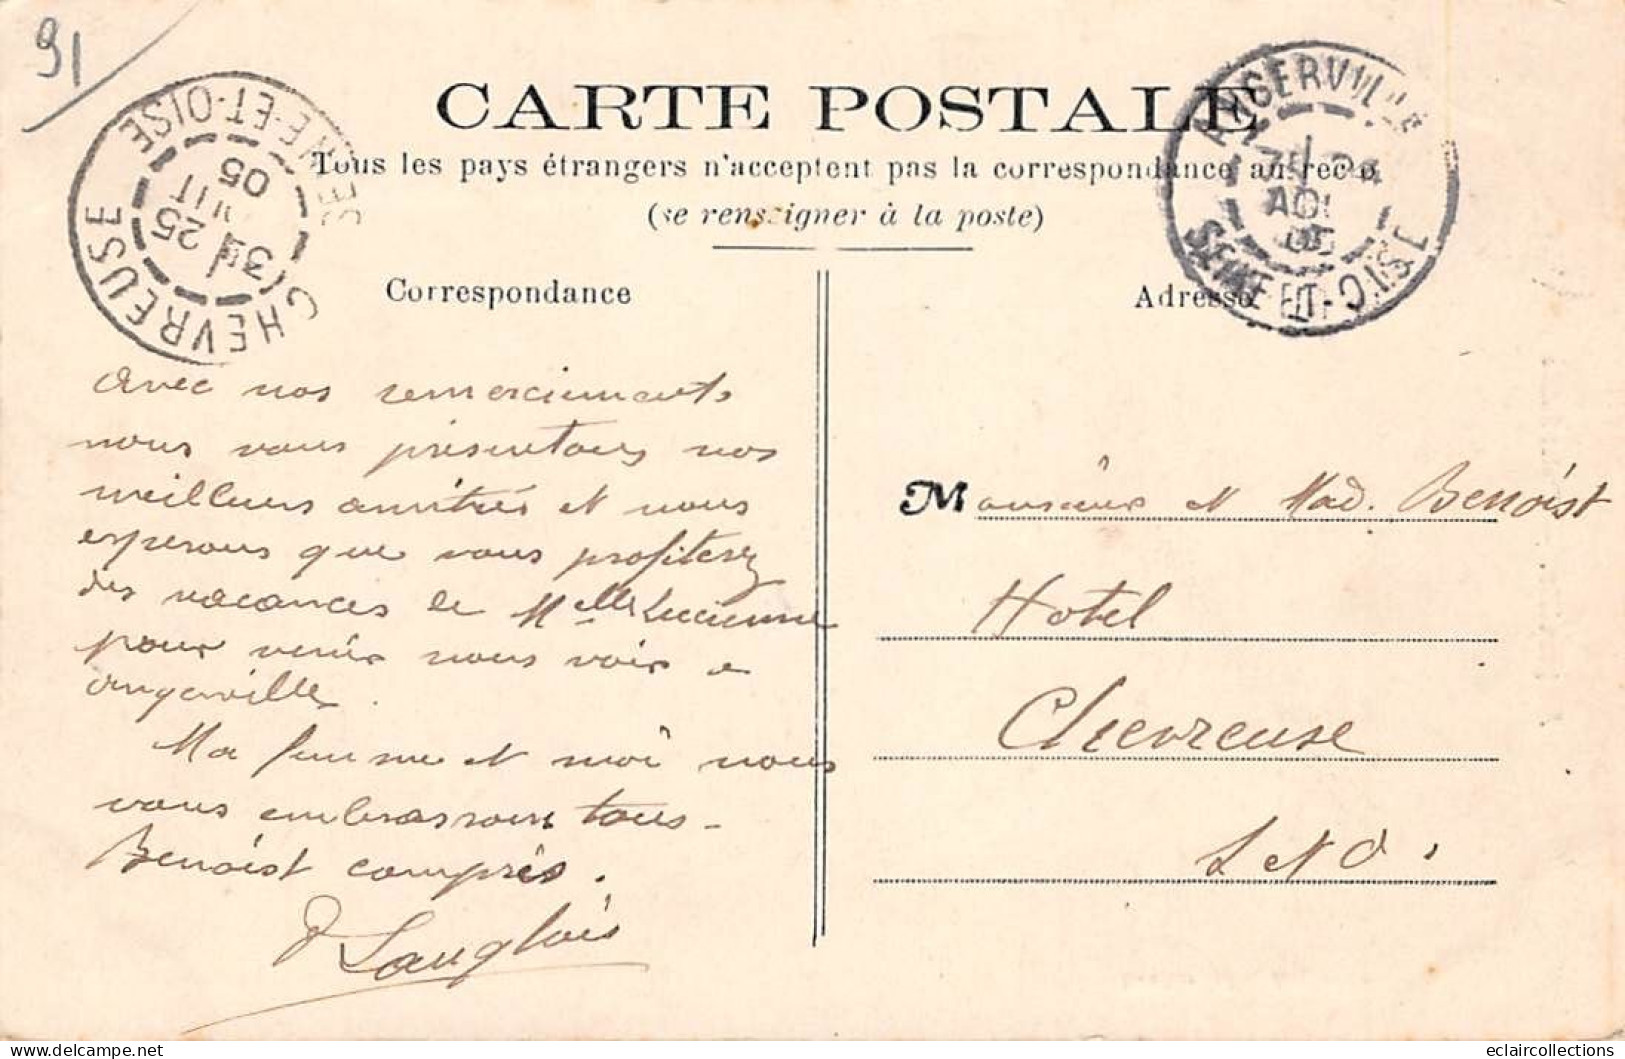 91
CARTE POSTALE
Tous les pays étrangers n'acceptent pas la correspondance au recto
(se renseigner à la poste)
CHEVREUSE SEINE-ET-OISE
3E
25
05
ANGERVILLE SEINE-ET-OISE
AOU
05
Correspondance
Adresse
Avec nos remerciements
nous vous présentons nos
meilleurs amitiés et nous
esperons que vous profiterez
des vacances de Melle Lucienne
pour venir nous voir a
angerville.
Ma femme et moi nous
vous embrassons tous -
Benoist compris.
Langlois
Monsieur et Mad. Benoist
Hotel
Chevreuse
S et O.
eclaircollections